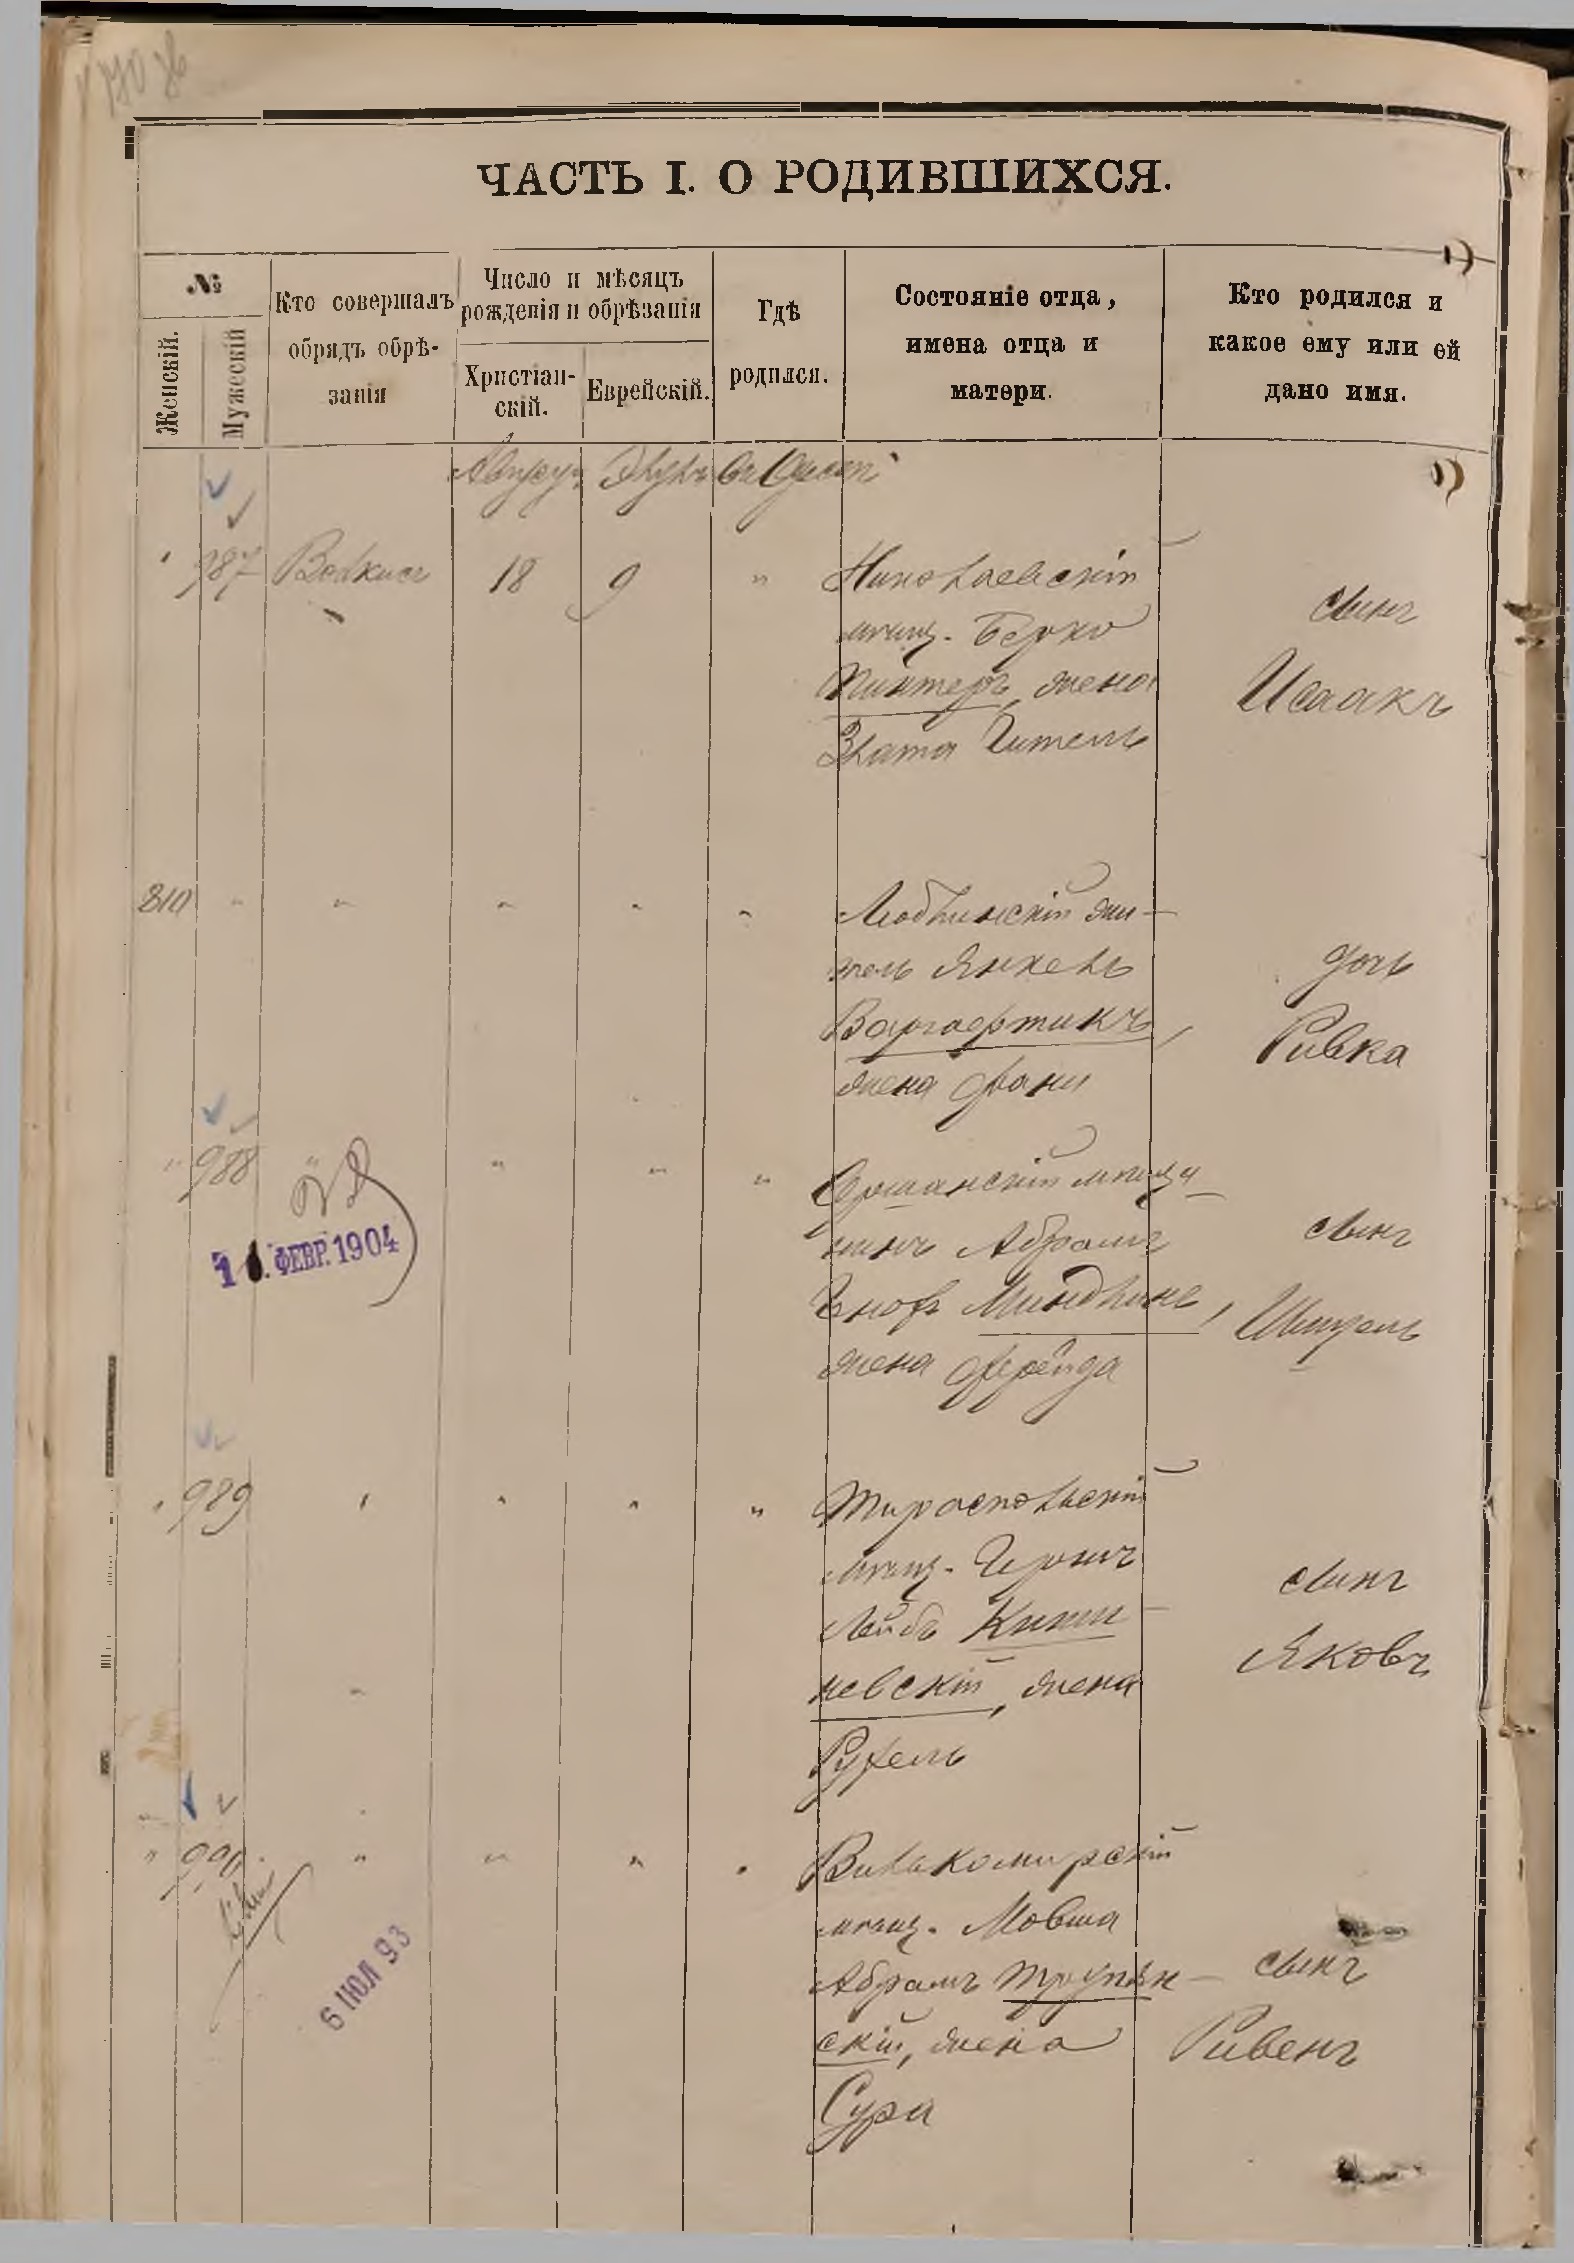 ЧАСТЬ I. О РОДИВШИХСЯ.
№
Женскій.
Мужескій
Кто совершалъ
обрядъ обрѣ-
занія
Число и мѣсяцъ
рожденія и обрѣзанія
Христіан-
скій.
Еврейскій.
Гдѣ
родился.
Состояніе отца,
имена отца и
матери.
Кто родился и
какое ему или ей
дано имя.
Август Элулъ въ Одессѣ
" 987 18 9 " Николаевскій
мѣщ. Берко
Пинтеръ, жена
Злата Гитель
сынъ
Исаакъ
810 " " " " " Люблинскій жи-
тель Янкель
Варгафтикъ,
жена Фани
дочь
Ривка
" 988 " " " " Оршанскій мѣща-
нинъ Абрамъ
Гнофъ Миндлинъ,
жена Фрейда
сынъ
Шмуель
1 . ФЕВР. 1904
" 989 " " " " Тираспольскій
мѣщ. Гершъ
Лейбъ Киши-
невскій, жена
Рухель
сынъ
Яковъ
" 990 " " " " Вилькомирскій
мѣщ. Мовша
Абрамъ Трупян-
скій, жена
Сура
сынъ
Рувенъ
6 ІЮЛ 93